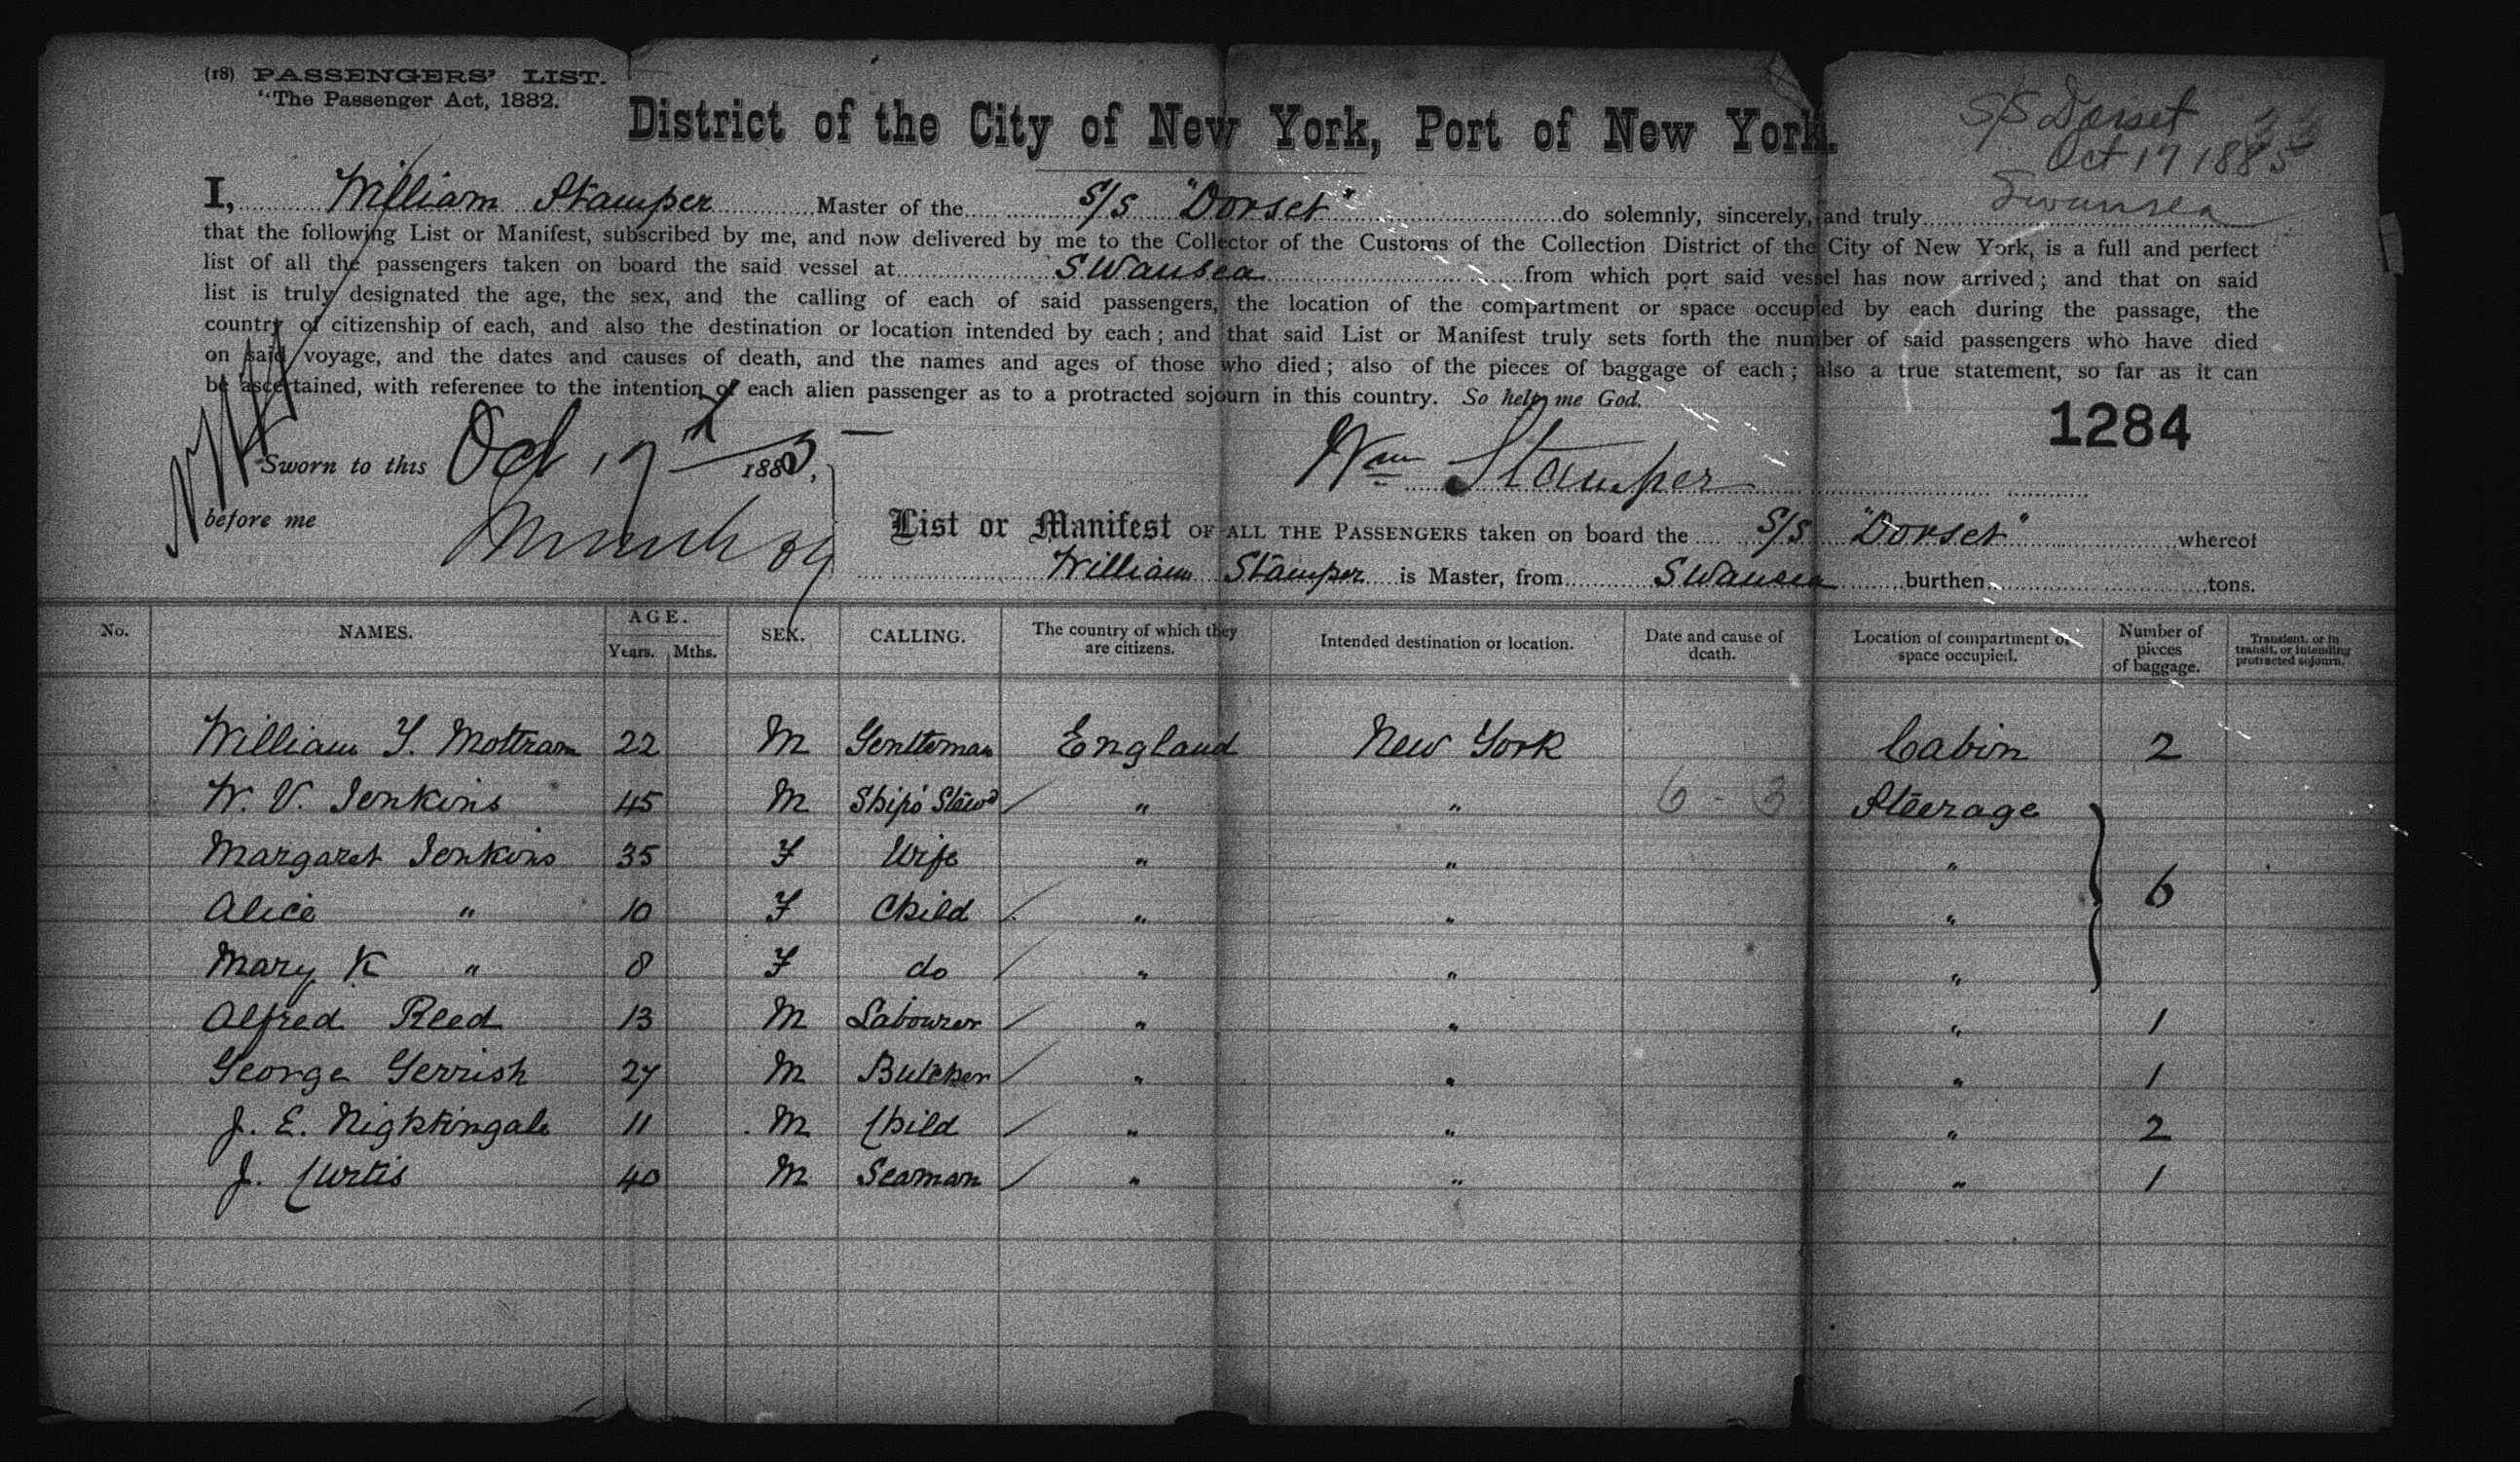 (18) PASSENGERS' LIST.
"The Passenger Act, 1882.
District of the City of New York, Port of New York.
S/S Dorset
Oct 17 1885
Swansea
I, William Stamper Master of the S/S "Dorset" do solemnly, sincerely, and truly
that the following List or Manifest, subscribed by me, and now delivered by me to the Collector of the Customs of the Collection District of the City of New York, is a full and perfect
list of all the passengers taken on board the said vessel at Swansea from which port said vessel has now arrived; and that on said
list is truly designated the age, the sex, and the calling of each of said passengers, the location of the compartment or space occupied by each during the passage, the
country of citizenship of each, and also the destination or location intended by each; and that said List or Manifest truly sets forth the number of said passengers who have died
on said voyage, and the dates and causes of death, and the names and ages of those who died; also of the pieces of baggage of each; also a true statement, so far as it can
be ascertained, with reference to the intention of each alien passenger as to a protracted sojourn in this country. So help me God.
1284
Sworn to this Oct 17 1885,
Wm Stamper
before me
List or Manifest OF ALL THE PASSENGERS taken on board the S/S "Dorset" whereof
William Stamper is Master, from Swansea burthen tons.
No. NAMES. AGE. Years. Mths. SEX. CALLING. The country of which they are citizens. Intended destination or location. Date and cause of death. Location of compartment or space occupied. Number of pieces of baggage. Transient, or in transit, or intending protracted sojourn.
William Y. Mottram 22 M Gentleman England New York Cabin 2
W. V. Jenkins 45 M Ship's Stewd " " 6 - 3 Steerage
Margaret Jenkins 35 F Wife " " "
Alice " 10 F Child " " " 6
Mary K " 8 F do " " "
Alfred Reed 13 M Labourer " " " 1
George Gerrish 27 M Butcher " " " 1
J. E. Nightingale 11 M Child " " " 2
J. Curtis 40 M Seaman " " " 1